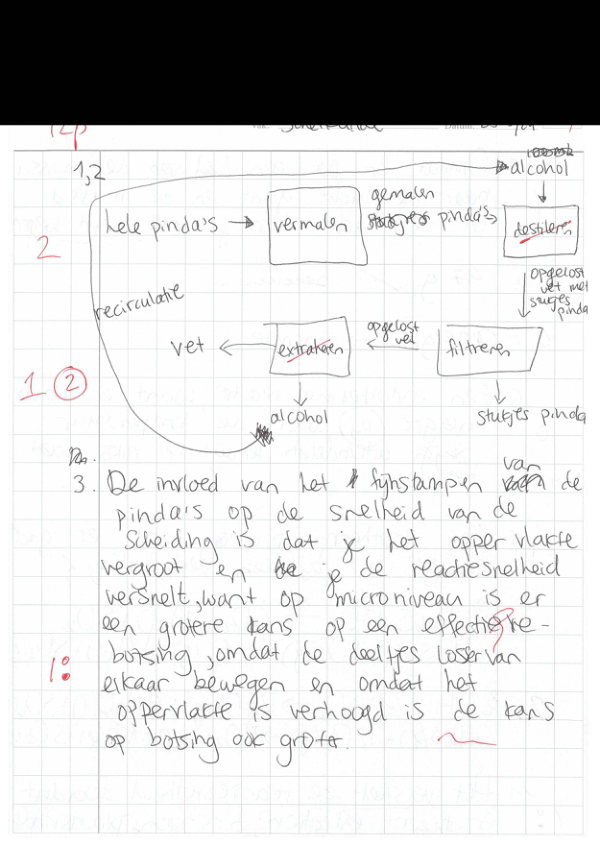 12p
1,2
alcohol
hele pinda's → vermalen
gemalen
pinda's
destileren
2
opgelost
vet met
stukjes
pinda
recirculatie
vet ← extraheren
opgelost
vet
filtreren
1 2
alcohol
stukjes pinda
3. De invloed van het fijnstampen van de
pinda's op de snelheid van de
scheiding is dat je het oppervlakte
vergroot en je de reactiesnelheid
versnelt, want op microniveau is er
een grotere kans op een effectieve
botsing, omdat de deeltjes losser van
1:
elkaar bewegen en omdat het
oppervlakte is verhoogd is de kans
op botsing ook groter.